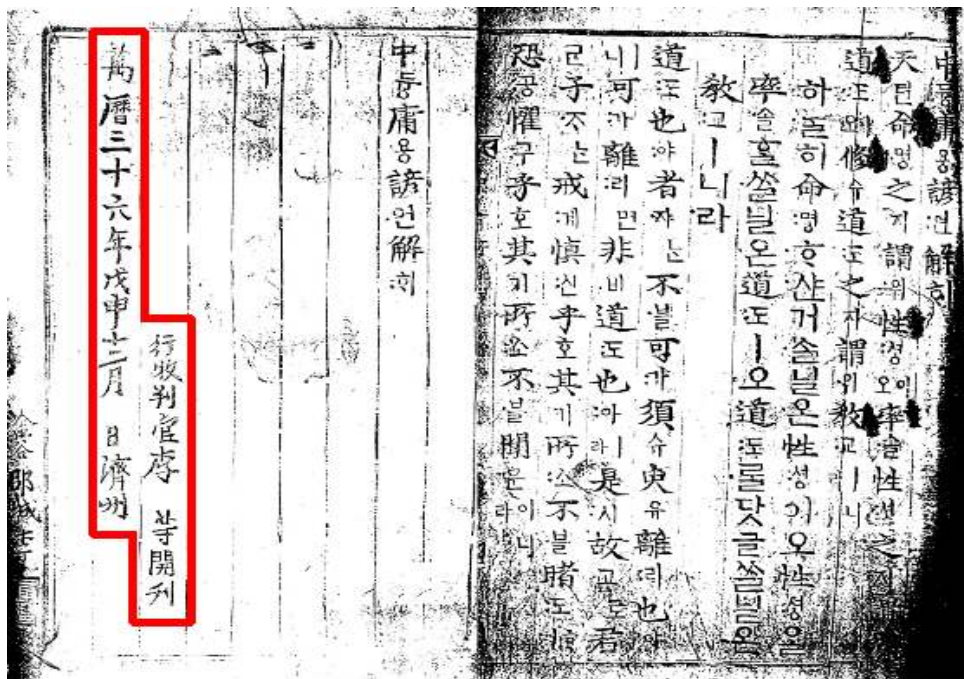 中듕庸용諺언解ᄒᆡ
天텬命명之지謂위性셩이오率솔性셩之지
道도ㅣ오修슈道도之지謂위敎교ㅣ니라
하ᄂᆞᆯ히命명ᄒᆞ샨거ᄉᆞᆯ닐온性셩이오性셩을
率솔ᄒᆞᆯᄊᆞᆯ닐온道도ㅣ오道도ᄅᆞᆯ닷글ᄊᆞᆯ닐온
敎교ㅣ니라
道도也야者쟈ᄂᆞᆫ不블可가須슈臾유離리也야
니可가離리면非비道도也야ㅣ라是시故고로君
군子ᄌᆞᄂᆞᆫ戒계愼신乎호其기所소不블睹도ᄒᆞ며
恐공懼구乎호其기所소不블聞문이니라
中듕庸용諺언解ᄒᆡ
萬曆三十六年戊申十二月 日濟州
行牧判官李 等開刊